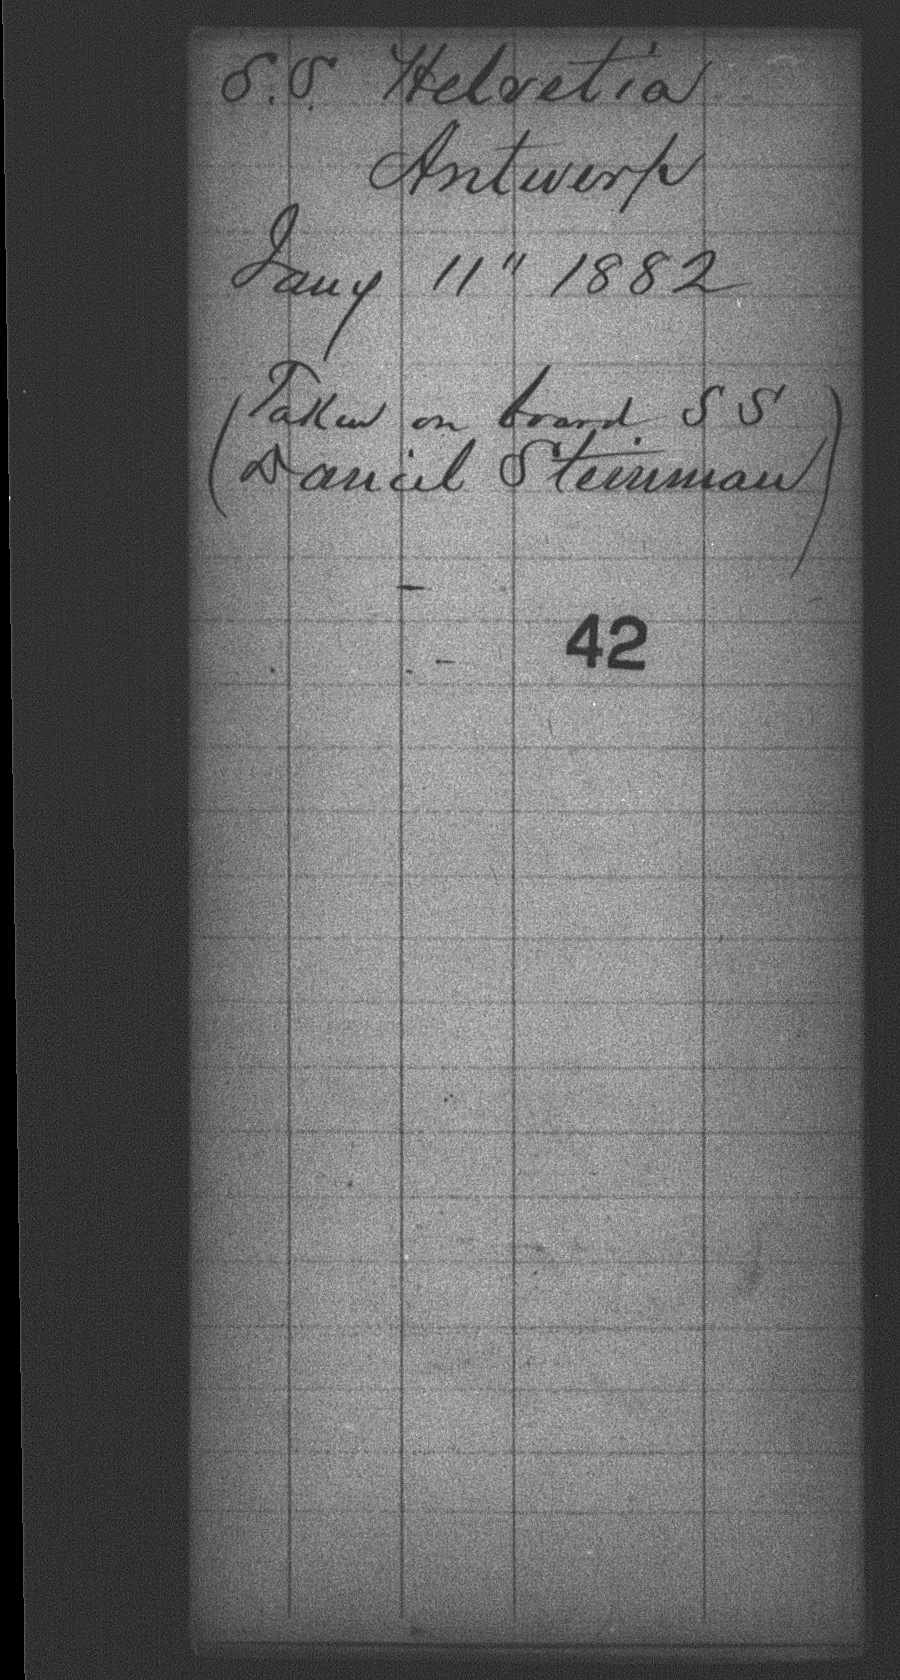 S.S. Helvetia
Antwerp
Jany 11" 1882
(Taken on board S S
Daniel Steinman)
42